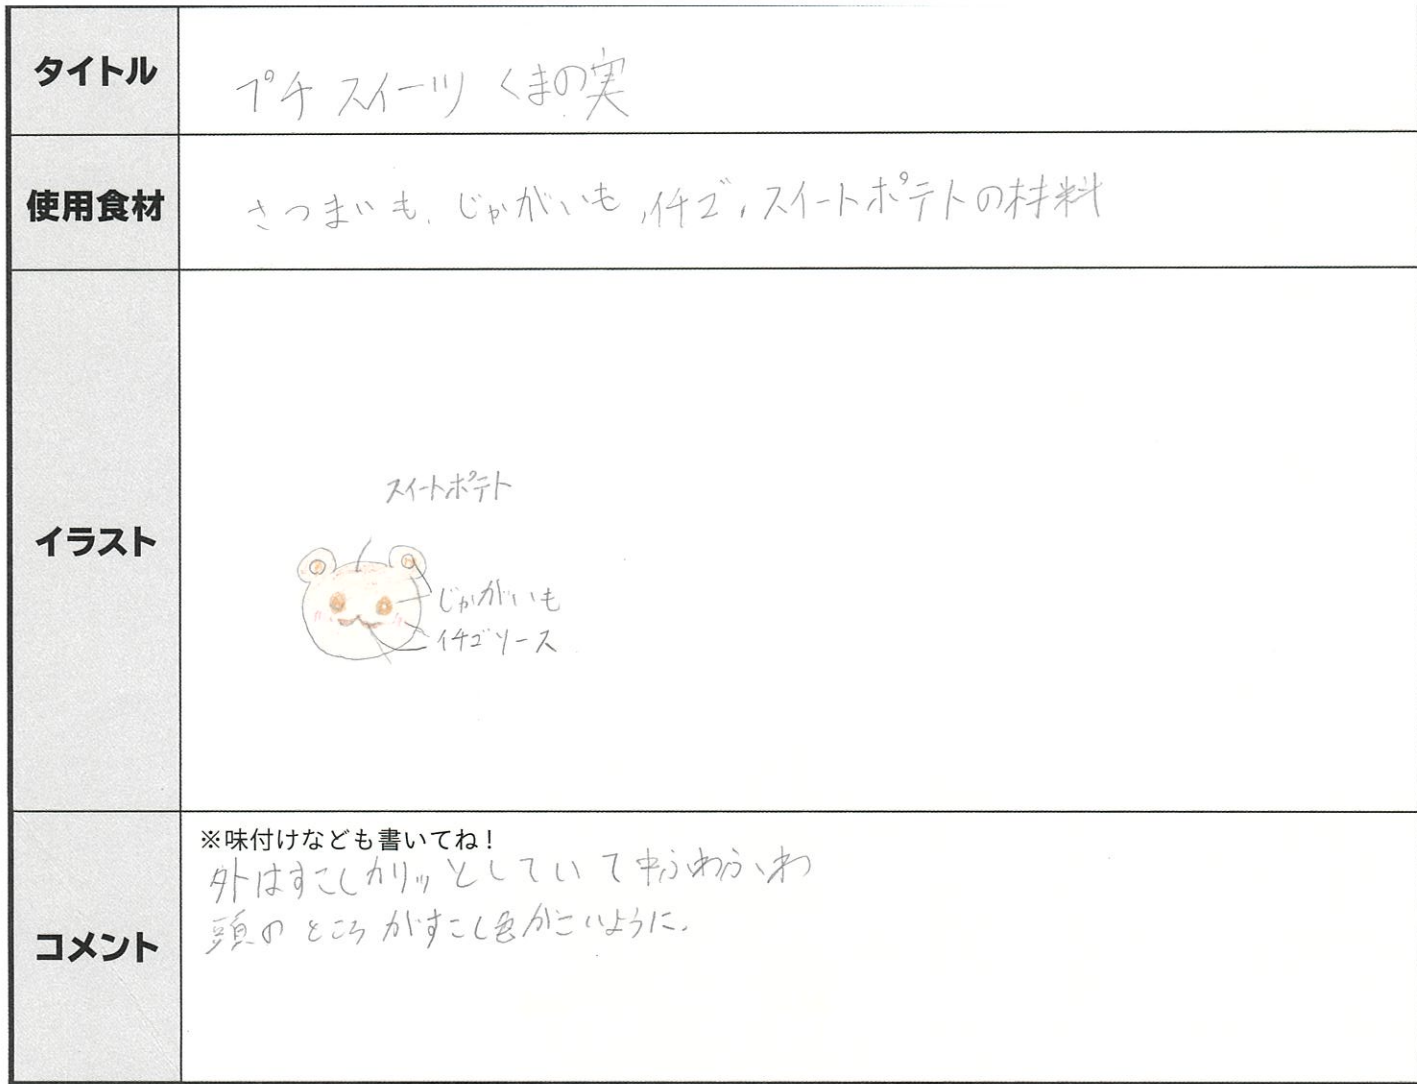 タイトル
プチ スイーツ くまの実
使用食材
さつまいも、じゃがいも、イチゴ、スイートポテトの材料
イラスト
スイートポテト
じゃがいも
イチゴソース
コメント
※味付けなども書いてね!
外はすこしカリッとしていて中ふわふわ
頭のところがすこし色がこいように。